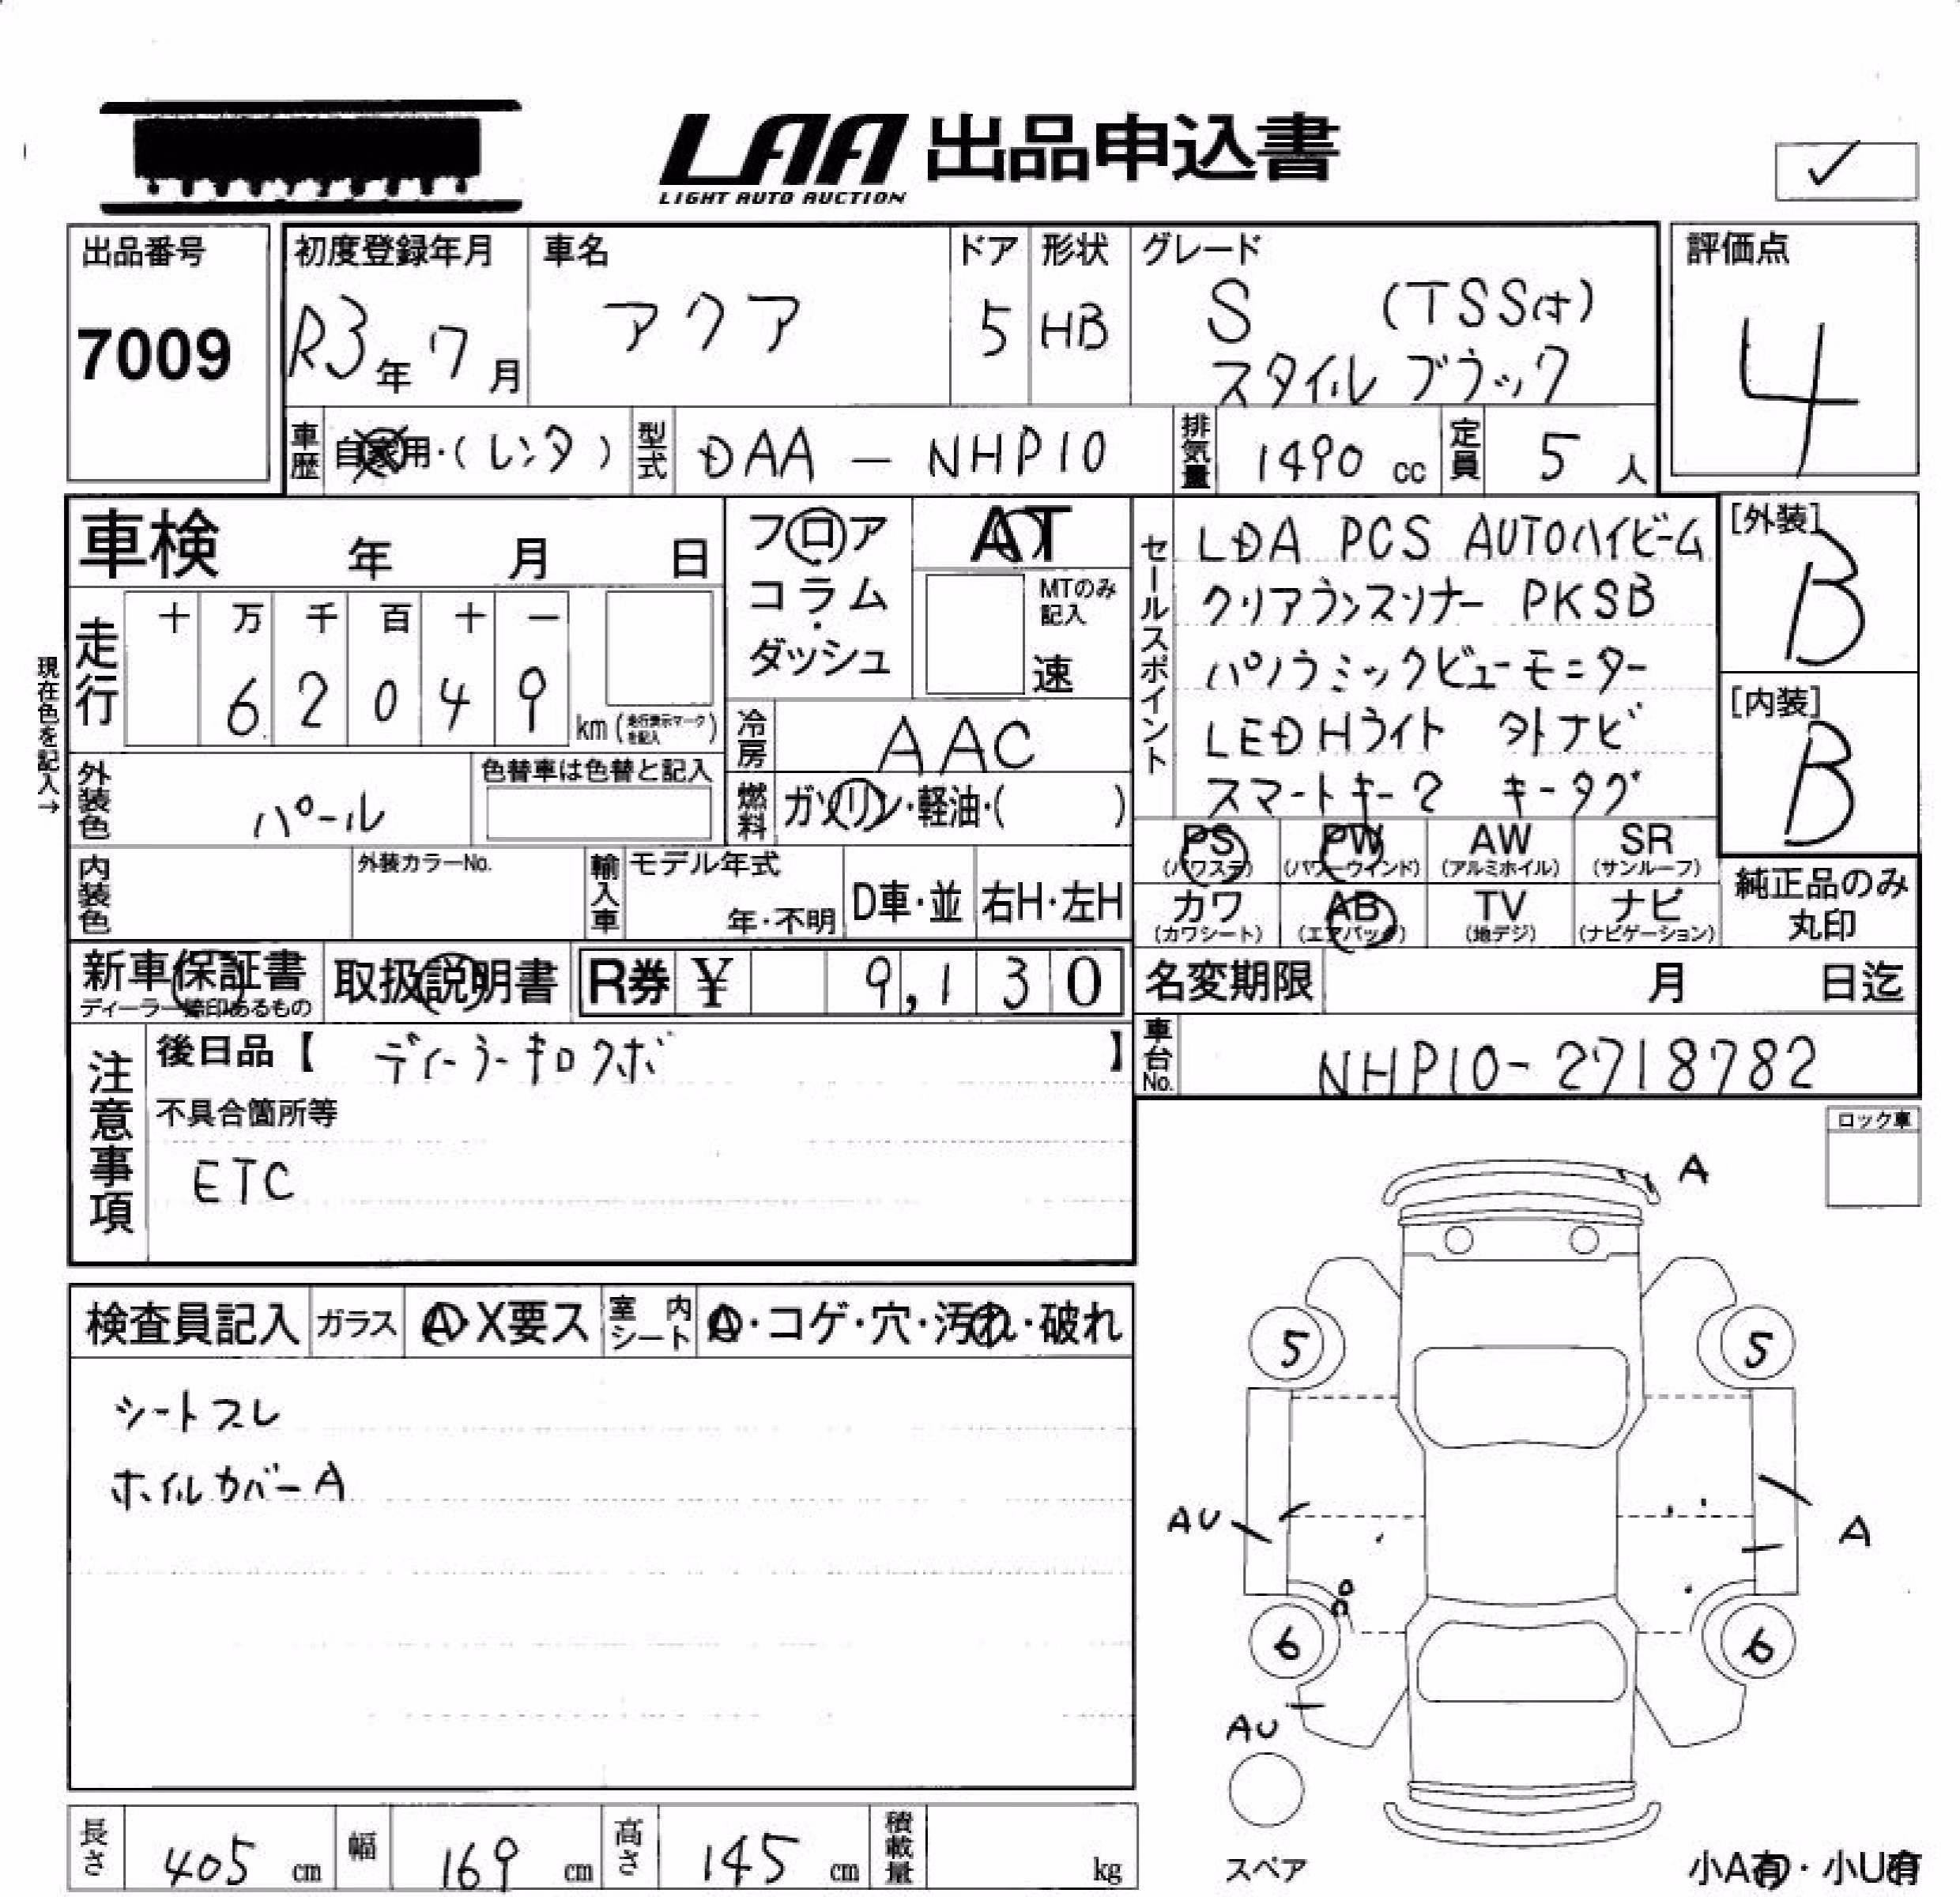 LAA 出品申込書
LIGHT AUTO AUCTION
✓
出品番号
7009
初度登録年月
R3年 7月
車名
アクア
ドア
5
形状
HB
グレード
S (TSS付)
スタイルブラック
評価点
4
車歴
自家用・(レンタ)
型式
DAA - NHP10
排気量
1490 cc
定員
5 人
車検 年 月 日
フロア
コラム
ダッシュ
AT
MTのみ
記入
速
セールスポイント
LDA PCS AUTOハイビーム
クリアランスソナー PKSB
パノラミックビューモニター
LEDHライト 外ナビ
スマートキー2 キータグ
[外装]
B
[内装]
B
現在色を記入→
走行
十 万 千 百 十 一
6 2 0 4 9
km(走行表示マークを記入)
冷房
AAC
外装色
パール
色替車は色替と記入
燃料
ガソリン・軽油・( )
PS
(パワステ)
PW
(パワーウインド)
AW
(アルミホイル)
SR
(サンルーフ)
カワ
(カワシート)
AB
(エアバック)
TV
(地デジ)
ナビ
(ナビゲーション)
純正品のみ
丸印
内装色
外装カラーNo.
輸入車
モデル年式
年・不明
D車・並
右H・左H
新車保証書
ディーラー捺印あるもの
取扱説明書
R券 ¥ 9,130
名変期限 月 日迄
注意事項
後日品【 ディーラーキロクボ 】
不具合箇所等
ETC
車台No.
NHP10-2718782
ロック車
検査員記入
ガラス
A・X要ス
室内シート
A・コゲ・穴・汚れ・破れ
シートスレ
ホイルカバーA
A
5
5
AU
A
6
6
AU
スペア
小A有・小U有
長さ
405 cm
幅
169 cm
高さ
145 cm
積載量
kg